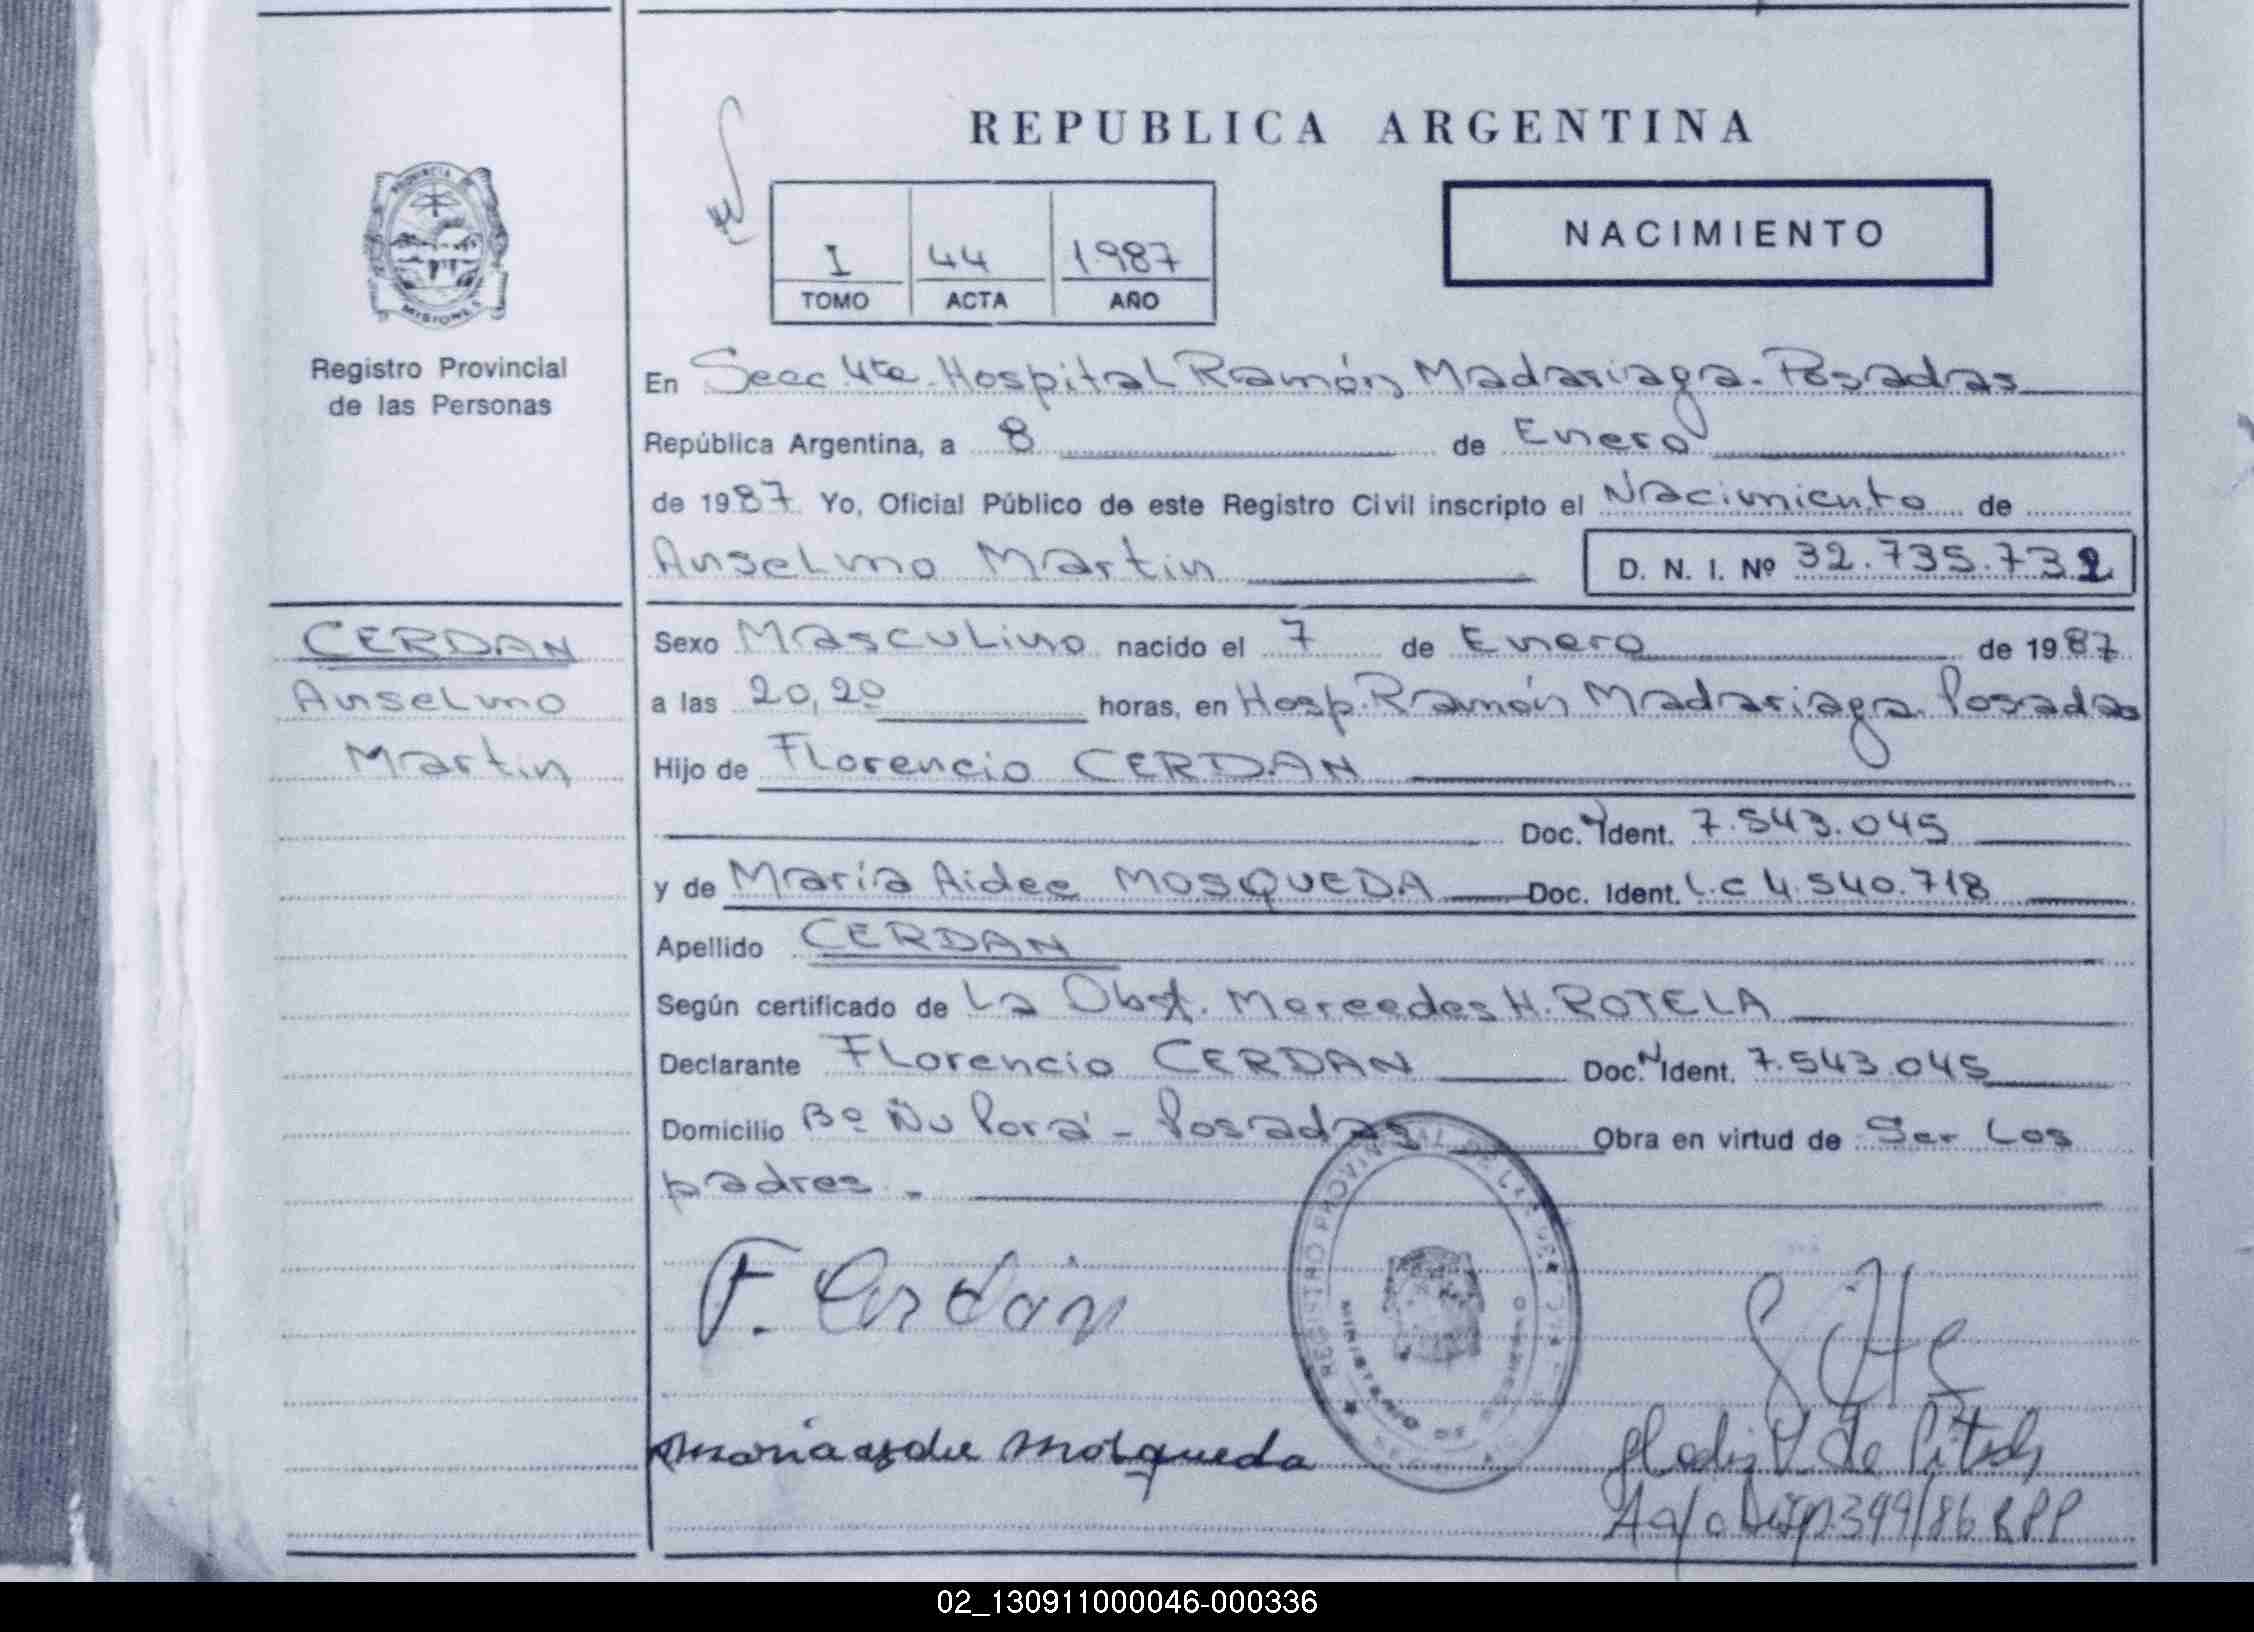 REPUBLICA ARGENTINA
PROVINCIA DE
MISIONES
Registro Provincial
de las Personas
I 44 1987
TOMO ACTA AÑO
NACIMIENTO
En Secc 4ta. Hospital Ramón Madariaga. Posadas
República Argentina, a 8 de Enero
de 1987. Yo, Oficial Público de este Registro Civil inscripto el Nacimiento de
Anselmo Martin D. N. I. Nº 32.735.732
CERDAN
Anselmo
Martin
Sexo Masculino nacido el 7 de Enero de 1987
a las 20,20 horas, en Hosp. Ramón Madariaga. Posadas
Hijo de Florencio CERDAN
Doc. Ident. 7.543.045
y de María Aidee MOSQUEDA Doc. Ident. L.C 4.540.718
Apellido CERDAN
Según certificado de La Obst. Mercedes H. ROTELA
Declarante Florencio CERDAN Doc. Ident. 7.543.045
Domicilio Bº Ñu Porá - Posadas Obra en virtud de Ser Los
padres.
REGISTRO PROVINCIAL DE LAS
MINISTERIO DE GOBIERNO
F. Cerdán
Maria Mosqueda
de
399/86 RPP
02_130911000046-000336